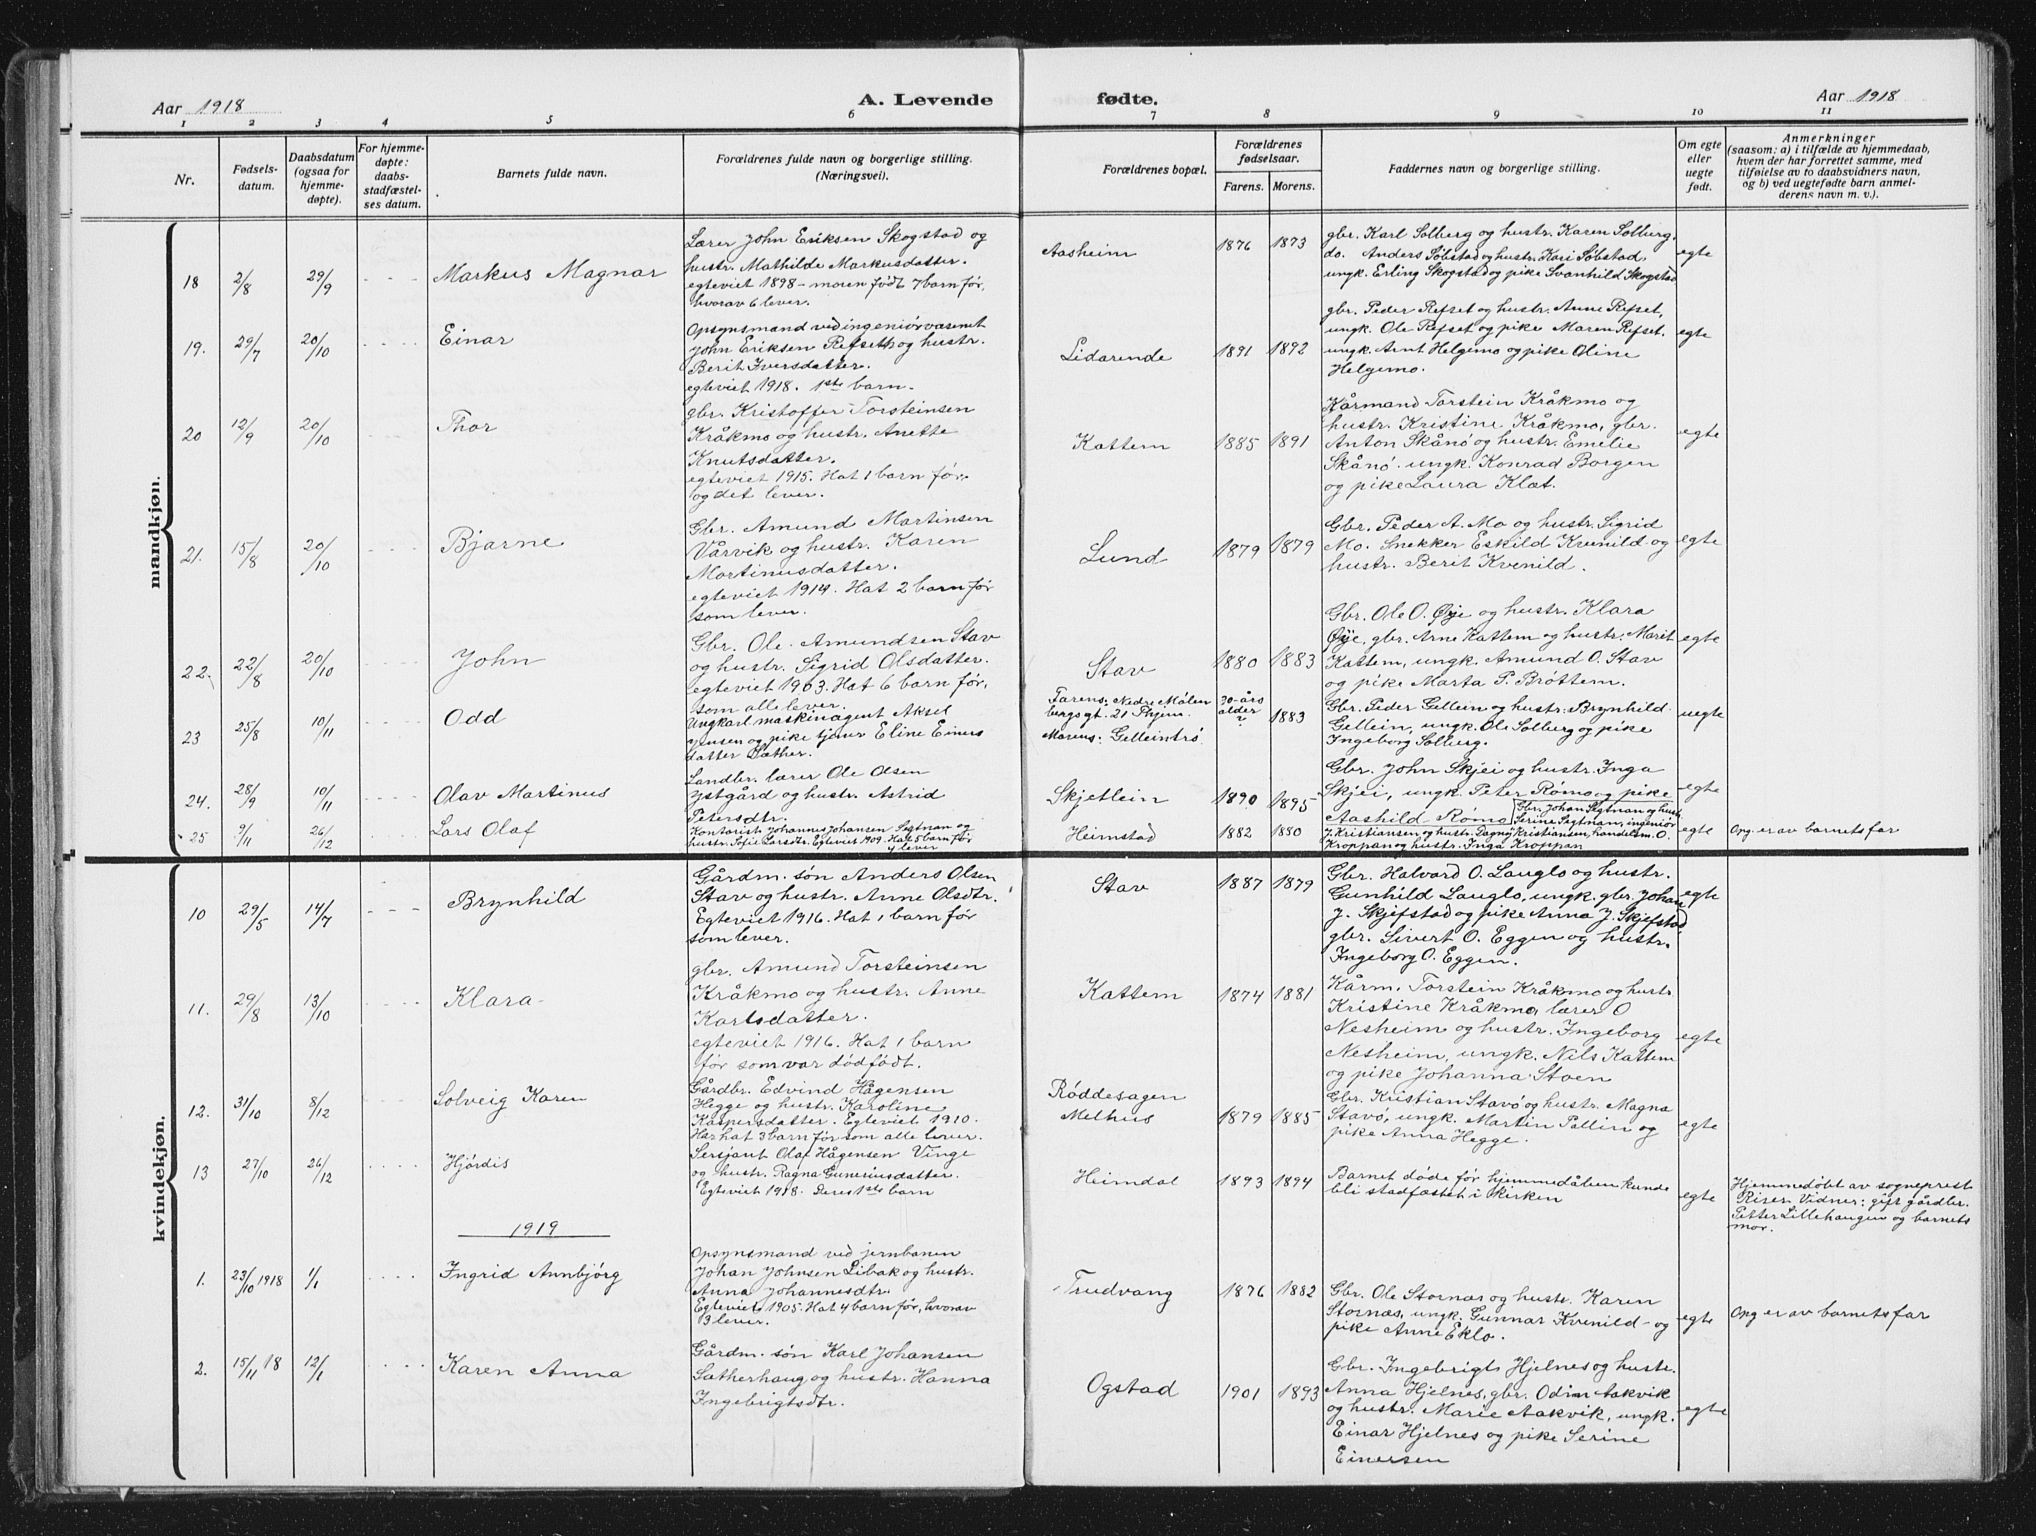 Aar 1918
A. Levende
fødte.
Aar 1918
1 2 3 4 5 6 7 8 9 10 11
Nr.
Fødsels-
datum.
Daabsdatum
(ogsaa for
hjemme-
døpte).
For hjemme-
døpte:
daabs-
stadfæstel-
ses datum.
Barnets fulde navn.
Forældrenes fulde navn og borgerlige stilling.
(Næringsvei).
Forældrenes bopæl.
Forældrenes
fødselsaar.
Farens. Morens.
Faddernes navn og borgerlige stilling.
Om egte
eller
uegte
født.
Anmerkninger
(saasom: a) i tilfælde av hjemmedaab,
hvem der har forrettet samme, med
tilføielse av to daabsvidners navn,
og b) ved uegtefødte barn anmel-
derens navn m. v.).
mandkjøn.
18 2/8 29/9 Markus Magnar
Lærer John Eriksen Skogstad og
hustr. Mathilde Markusdatter.
egteviet 1898 - moren født 7 barn før,
hvorav 6 lever.
Aasheim 1876 1873
gbr. Karl Solberg og hustr. Karen Solberg,
do. Anders Søbstad og hustr. Kari Søbstad,
ungk. Erling Skogstad og pike Svanhild Skogstad
egte
19. 29/7 20/10 Einar
Opsynsmand ved ingeniørvæsenet
John Eriksen Refseth og hustr.
Berit Iversdatter.
egteviet 1918. 1ste barn.
Lidarende 1891 1892
gbr. Peder Refset og hustr. Anne Refset,
ungk. Ole Refset og pike Maren Refset.
ungk. Arnt Helgemo og pike Oline
Helgemo.
egte
20 12/9 20/10 Thor
gbr. Kristoffer Torsteinsen
Kråkmo og hustr. Anette
Knutsdatter.
egteviet 1915. Hat 1 barn før.
og det lever.
Kattem 1885 1891
Kårmand Torstein Kråkmo og
hustr. Kristine Kråkmo, gbr.
Anton Skånø og hustr. Emelie
Skånø. ungk. Konrad Borgen
og pike Laura Klæt.
egte
21. 15/8 20/10 Bjarne
Gbr. Amund Martinsen
Vårvik og hustr. Karen
Martinusdatter.
egteviet 1914. Hat 2 barn før
som lever.
Lund 1879 1879
Gbr. Peder A. Mo og hustr. Sigrid
Mo. Snekker Eskild Kvenild og
hustr. Berit Kvenild.
egte
22. 22/8 20/10 John
Gbr. Ole Amundsen Stav
og hustr. Sigrid Olsdatter.
egteviet 1903. Hat 6 barn før,
som alle lever.
Stav 1880 1883
Gbr. Ole O. Øye og hustr. Klara
Øye, gbr. Arne Kattem og hustr. Marit
Kattem, ungk. Amund O. Stav
og pike Marta P. Brøttem.
egte
23 25/8 10/11 Odd
Ungkarl maskinagent Aksel
Jensen og pike tjener Eline Einers
datter Sæther.
Farens: Nedre Møllen
bergsgt. 21 Thjem.
Morens: Gelleintrø
30-års
alder
? 1883
Gbr. Peder Gellein og hustr. Brynhild
Gellein, ungk. Ole Solberg og pike
Ingeborg Solberg.
uegte
24. 28/9 10/11 Olav Martinus
Landbr. lærer Ole Olsen
Ystgård og hustr. Astrid
Petersdtr.
Skjetlein 1890 1895
Gbr. John Skjei og hustr. Inga
Skjei, ungk. Peter Rømo og pike
Aashild Rømo
egte
25 9/11 26/12 Lars Olaf
Kontorist Johannes Johansen Segtnan og
hustr. Sofie Larsdtr. Egteviet 1909. Hat 5 barn før
4 lever
Heimstad 1882 1880
Gbr. Johan Segtnan og hustr.
Serine Segtnan, ingeniør
J. Kristiansen og hustr. Dagny Kristiansen, handelsm. O.
Kroppan og hustr. Inga Kroppan
egte Opg. er av barnets far
kvindekjøn.
10 29/5 14/7 Brynhild
Gårdm. søn Anders Olsen
Stav og hustr. Anne Olsdtr.
Egteviet 1916. Hat 1 barn før
som lever.
Stav 1887 1879
Gbr. Halvard O. Lauglo og hustr.
Gunhild Lauglo, ungk. gbr. Johan
J. Skjefstad og pike Anna J. Skjefstad
gbr. Sivert O. Eggen og hustr.
Ingeborg O. Eggen.
egte
11. 29/8 13/10 Klara
gbr. Amund Torsteinsen
Kråkmo og hustr. Anne
Karlsdatter.
egteviet 1916. Hat 1 barn
før som var dødfødt.
Kattem 1874 1881
Kårm. Torstein Kråkmo og hustr.
Kristine Kråkmo, lærer O
Nesheim og hustr. Ingeborg
Nesheim, ungk. Nils Kattem
og pike Johanna Stoen
egte
12. 31/10 8/12 Solveig Karen
Gårdbr. Edvind Hågensen
Hegge og hustr. Karoline
Kaspersdatter. Egteviet 1910.
Har hat 3 barn før som alle lever.
Røddesagen
Melhus 1879 1885
Gbr. Kristian Stavø og hustr. Magna
Stavø, ungk. Martin Pallin og
pike Anna Hegge.
egte
13 27/10 26/12 Hjørdis
Sersjant Olaf Hågensen Vinge
og hustr. Ragna Guneriusdatter.
Egteviet 1918. Deres 1ste barn
Heimdal 1893 1894
Barnet døde før hjemmedåben kunde
bli stadfæstet i kirken
egte
Hjemmedøbt av sogneprest
Riser. Vidner: gift gårdbr.
Petter Lillehaugen og barnets
mor.
1919
1. 23/10 1918 1/1 Ingrid Annbjørg
Opsynsmand ved jernbanen
Johan Johnsen Libak og hustr.
Anna Johannesdtr.
Egteviet 1905. Hat 4 barn før, hvorav
3 lever.
Trudvang 1876 1882
Gbr. Ole Stornæs og hustr. Karen
Stornæs, ungk. Gunnar Kvenild og
pike Anne Eklo.
egte Opg er av barnets far
2. 15/11 18 12/1 Karen Anna
Gårdm. søn Karl Johansen
Sætherhaug og hustr. Hanna
Ingebrigtsdtr.
Ogstad 1901 1893
Gbr. Ingebrigt Hjelnes og hustr.
Anna Hjelnes, gbr. Odin Aakvik
og hustr. Marie Aakvik, ungk.
Einar Hjelnes og pike Serine
Einersen
egte